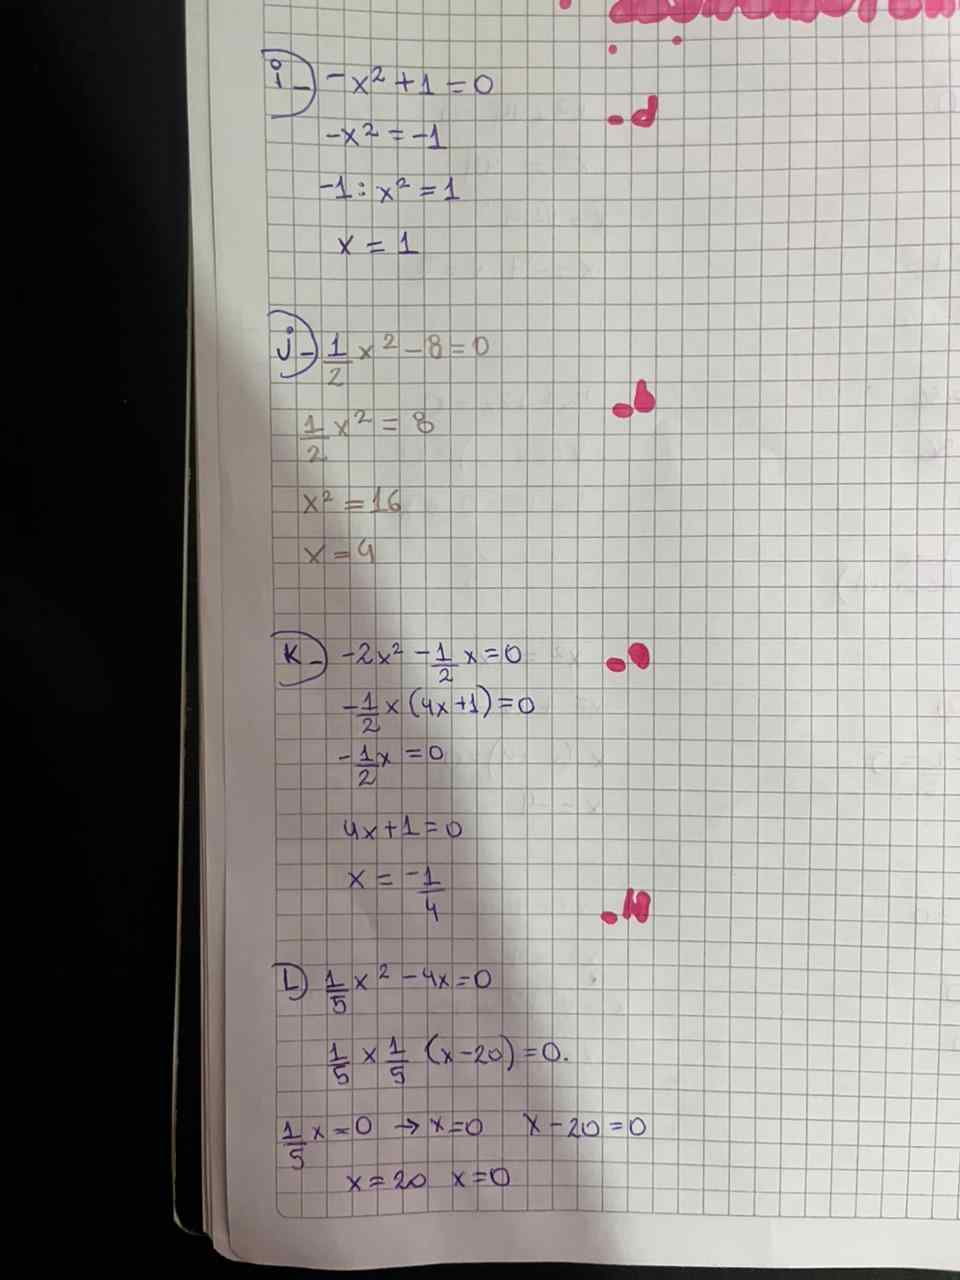 i- -x² + 1 = 0
-x² = -1
-1 : x² = 1
x = 1
j- 1/2 x² - 8 = 0
1/2 x² = 8
x² = 16
x = 4
K- -2x² - 1/2 x = 0
-1/2 x (4x+1) = 0
-1/2 x = 0
4x + 1 = 0
x = -1/4
L) 1/5 x² - 4x = 0
1/5 x 1/5 (x-20) = 0.
1/5 x = 0 → x = 0 x - 20 = 0
x = 20 x = 0